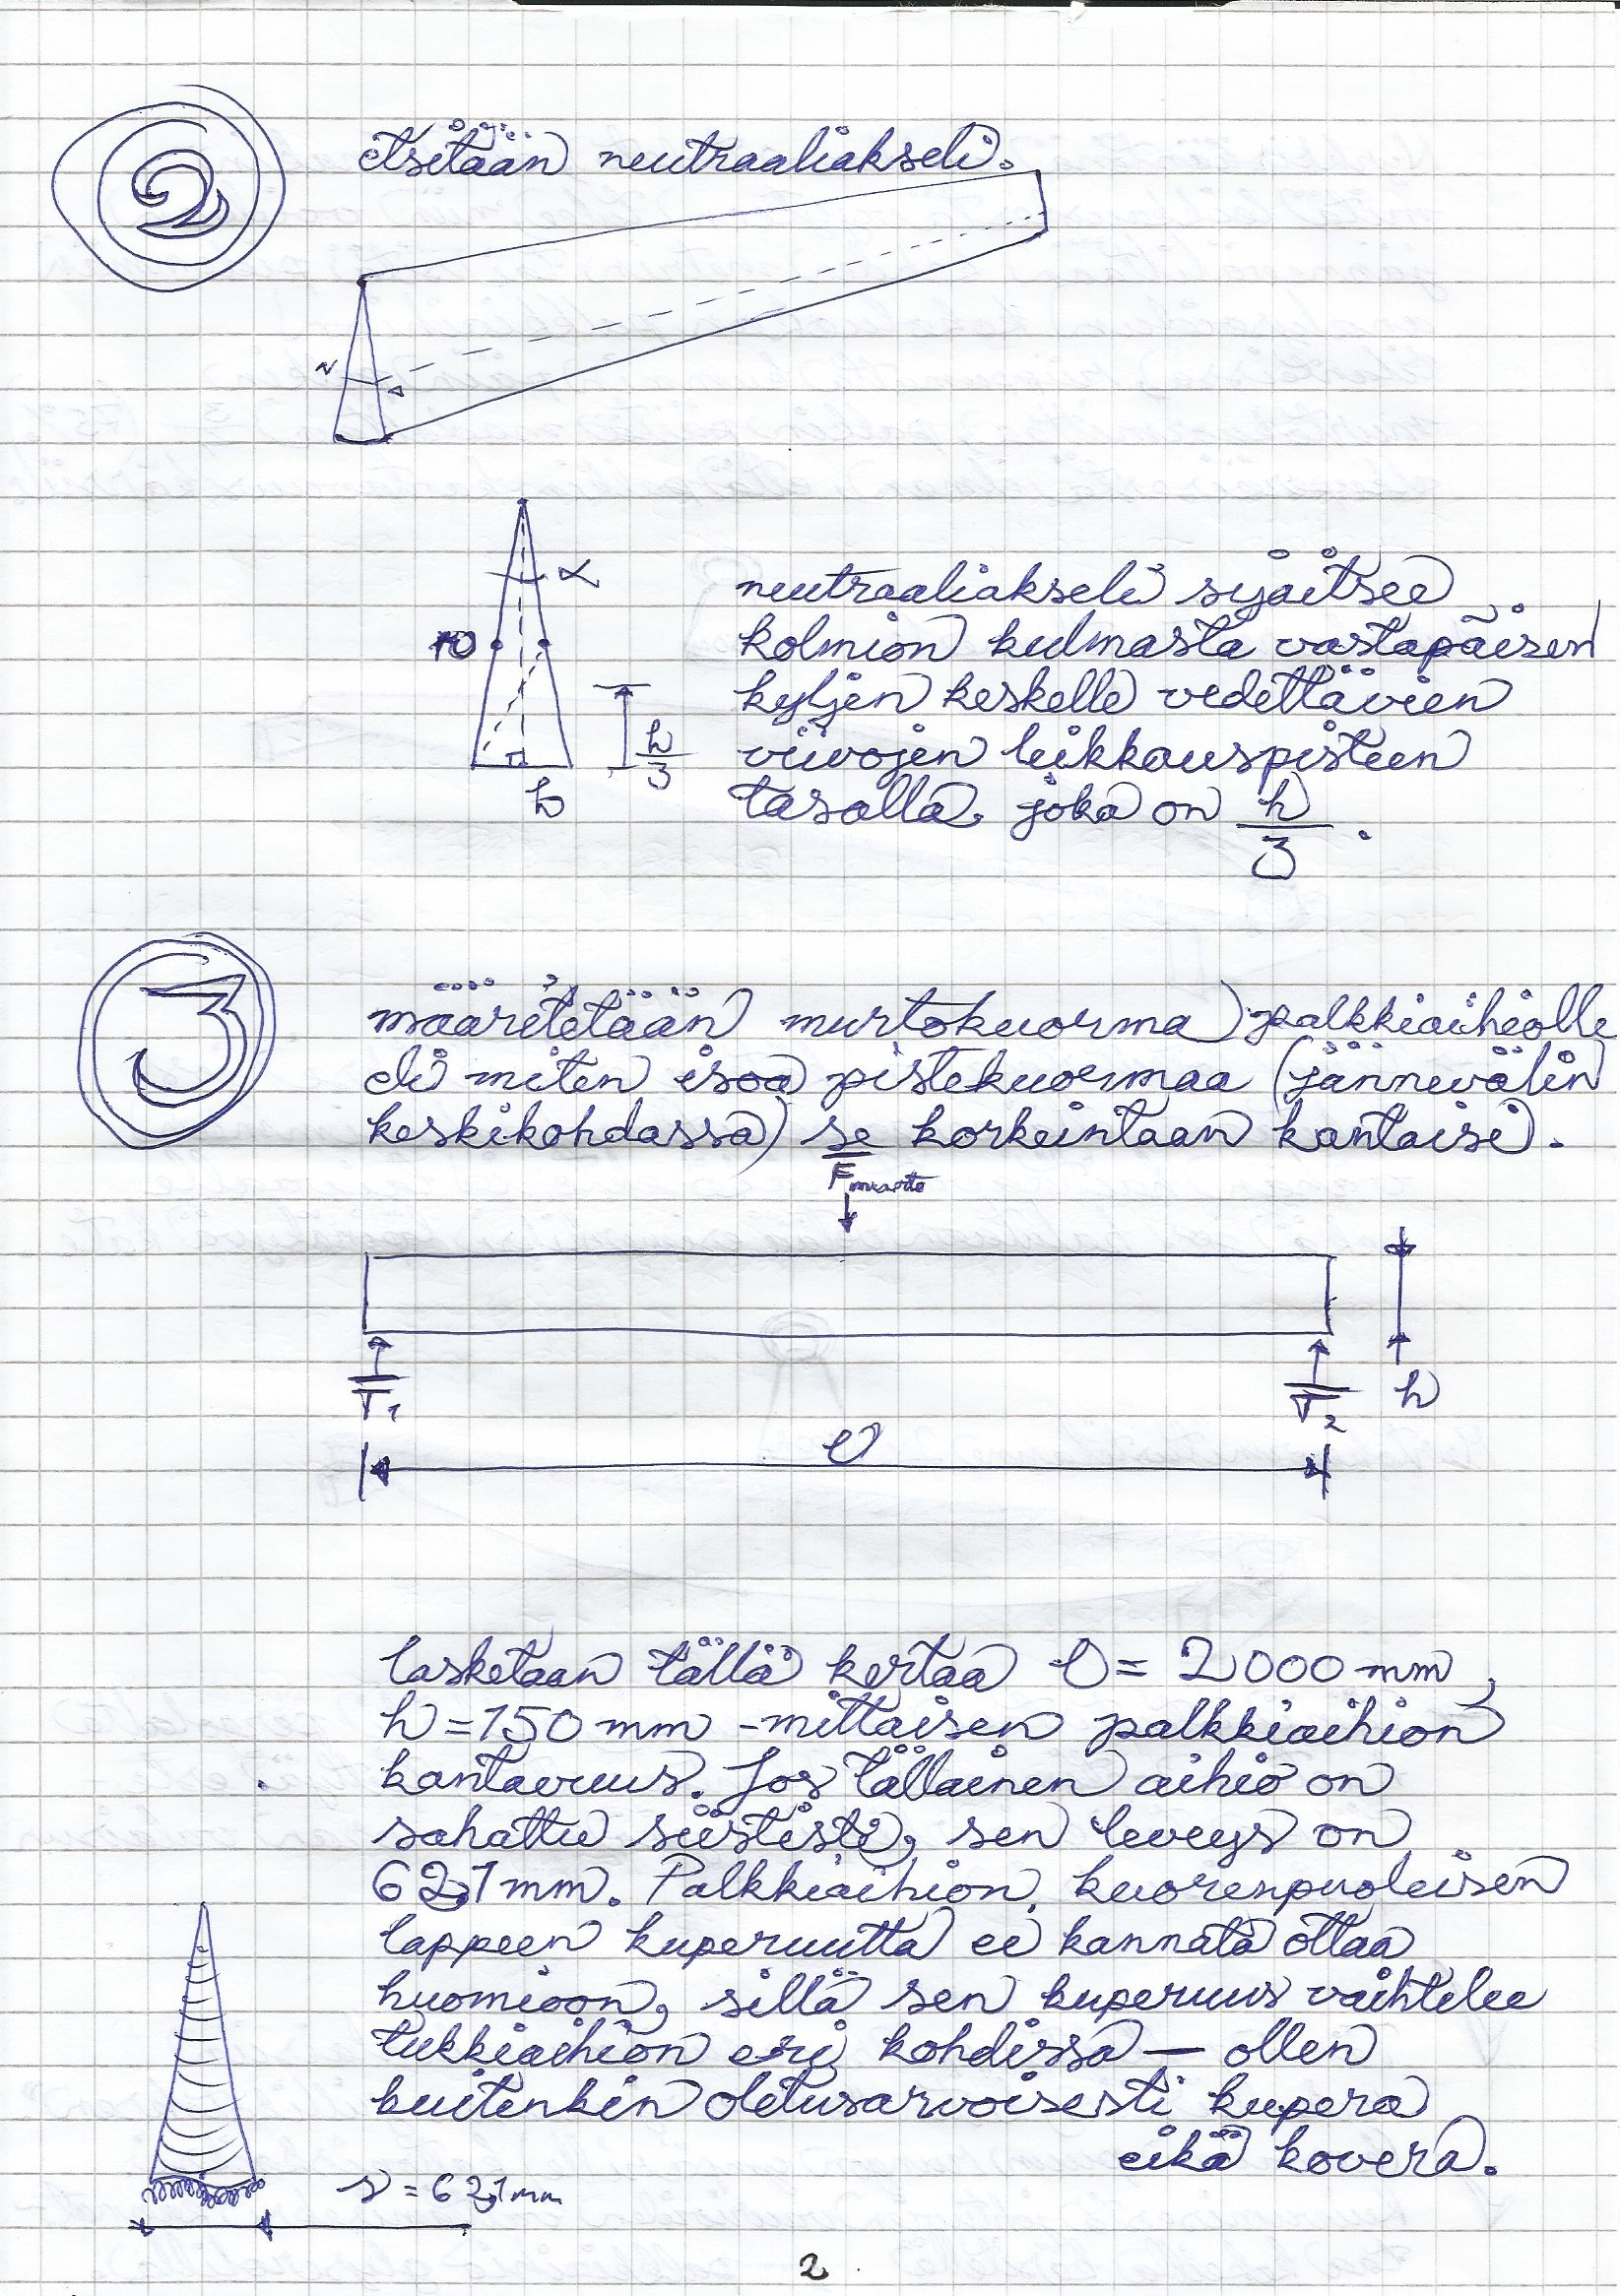 2
etsitään neutraaliakseli.
N
α
10
h
3
h
neutraaliakseli sijaitsee
kolmion kulmasta vastapäisen
kyljen keskelle vedettävien
viivojen leikkauspisteen
tasolla, joka on h
3 .
3
määritetään murtokuorma palkkiaihiolle
eli miten isoa pistekuormaa (jännevälin
keskikohdassa) se korkeintaan kantaisi.
F murto
T1
T2
h
l
lasketaan tällä kertaa l = 2000 mm,
h = 150 mm -mittaisen palkkiaihion
kantavuus. Jos tällainen aihio on
sahattu siististi, sen leveys on
62,1 mm. Palkkiaihion kuorenpuoleisen
lappeen kuperuutta ei kannata ottaa
huomioon, sillä sen kuperuus vaihtelee
tukkiaihion eri kohdissa — ollen
kuitenkin oletusarvoisesti kupera
eikä kovera.
s = 62,1 mm
2